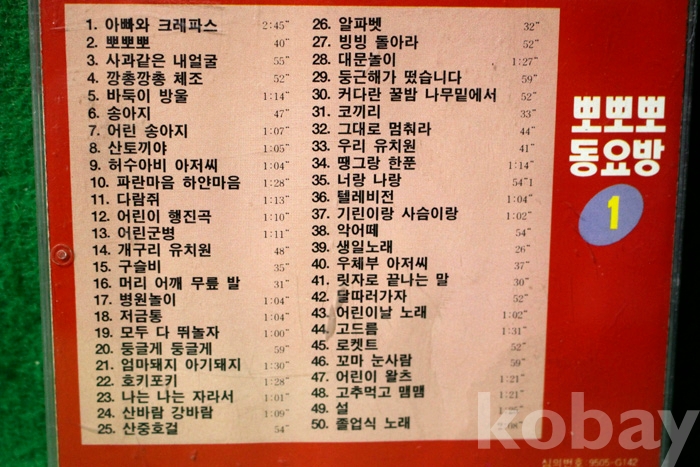 1. 아빠와 크레파스 2:45"
2. 뽀뽀뽀 40"
3. 사과같은 내얼굴 55"
4. 깡총깡총 체조 52"
5. 바둑이 방울 1:14"
6. 송아지 47"
7. 어린 송아지 1:07"
8. 산토끼야 1:05"
9. 허수아비 아저씨 1:04"
10. 파란마음 하얀마음 1:28"
11. 다람쥐 1:13"
12. 어린이 행진곡 1:10"
13. 어린군병 1:11"
14. 개구리 유치원 48"
15. 구슬비 35"
16. 머리 어깨 무릎 발 31"
17. 병원놀이 1:04"
18. 저금통 1:04"
19. 모두 다 뛰놀자 1:00"
20. 둥글게 둥글게 59"
21. 엄마돼지 아기돼지 1:30"
22. 호키포키 1:28"
23. 나는 나는 자라서 1:01"
24. 산바람 강바람 1:09"
25. 산중호걸 54"
26. 알파벳 32"
27. 빙빙 돌아라 52"
28. 대문놀이 1:27"
29. 둥근해가 떴습니다 59"
30. 커다란 꿀밤 나무밑에서 52"
31. 코끼리 33"
32. 그대로 멈춰라 44"
33. 우리 유치원 41"
34. 땡그랑 한푼 1:14"
35. 너랑 나랑 54"1
36. 텔레비전 1:04"
37. 기린이랑 사슴이랑 1:02"
38. 악어떼 54"
39. 생일노래 26"
40. 우체부 아저씨 37"
41. 릿자로 끝나는 말 30"
42. 달따러가자 52"
43. 어린이날 노래 1:02"
44. 고드름 1:31"
45. 로켓트 52"
46. 꼬마 눈사람 59"
47. 어린이 왈츠 1:21"
48. 고추먹고 맴맴 1:21"
49. 설
50. 졸업식 노래
뽀뽀뽀
동요방
1
kobay
심의번호 9505-G142